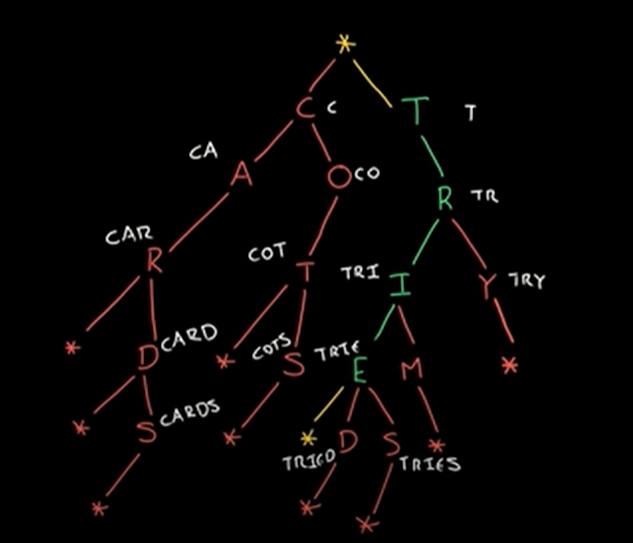 *
C C T T
CA A O CO R TR
CAR R COT T TRI I Y TRY
* D CARD * COTS S TRIE E M *
* S CARDS * * D S *
TRIED TRIES
* * *